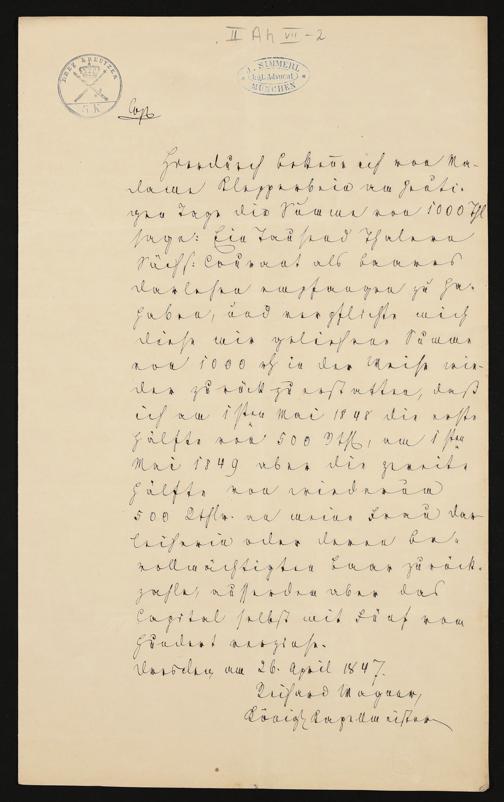 II Ah VII - 2
DREI KREUTZER
3 K
J. SIMMERL
kgl. Advocat
MÜNCHEN
Cop.
Hierdurch bekenne ich von Ma-
dame Klepperbein am heuti-
gen Tage die Summe von 1000 Thl
sage: Ein Tausend Thalern
Sächs: Courant als baares
Darlehen empfangen zu ha-
haben, und verpflichte mich
diese mir geliehene Summe
von 1000 rh in der Weise wie-
der zurück zu erstatten, daß
ich am 1sten Mai 1848 die erste
Hälfte von 500 Rthl, am 1sten
Mai 1849 aber die zweite
Hälfte von wiederum
500 Rthlr. an meine Frau Dar-
leiherin oder deren Be-
vollmächtigten baar zurück-
zahle, ausserdem aber das
Capital selbst mit Fünf vom
Hundert verzinse.
Dresden, am 26. April 1847.
Richard Wagner,
Königl Kapellmeister